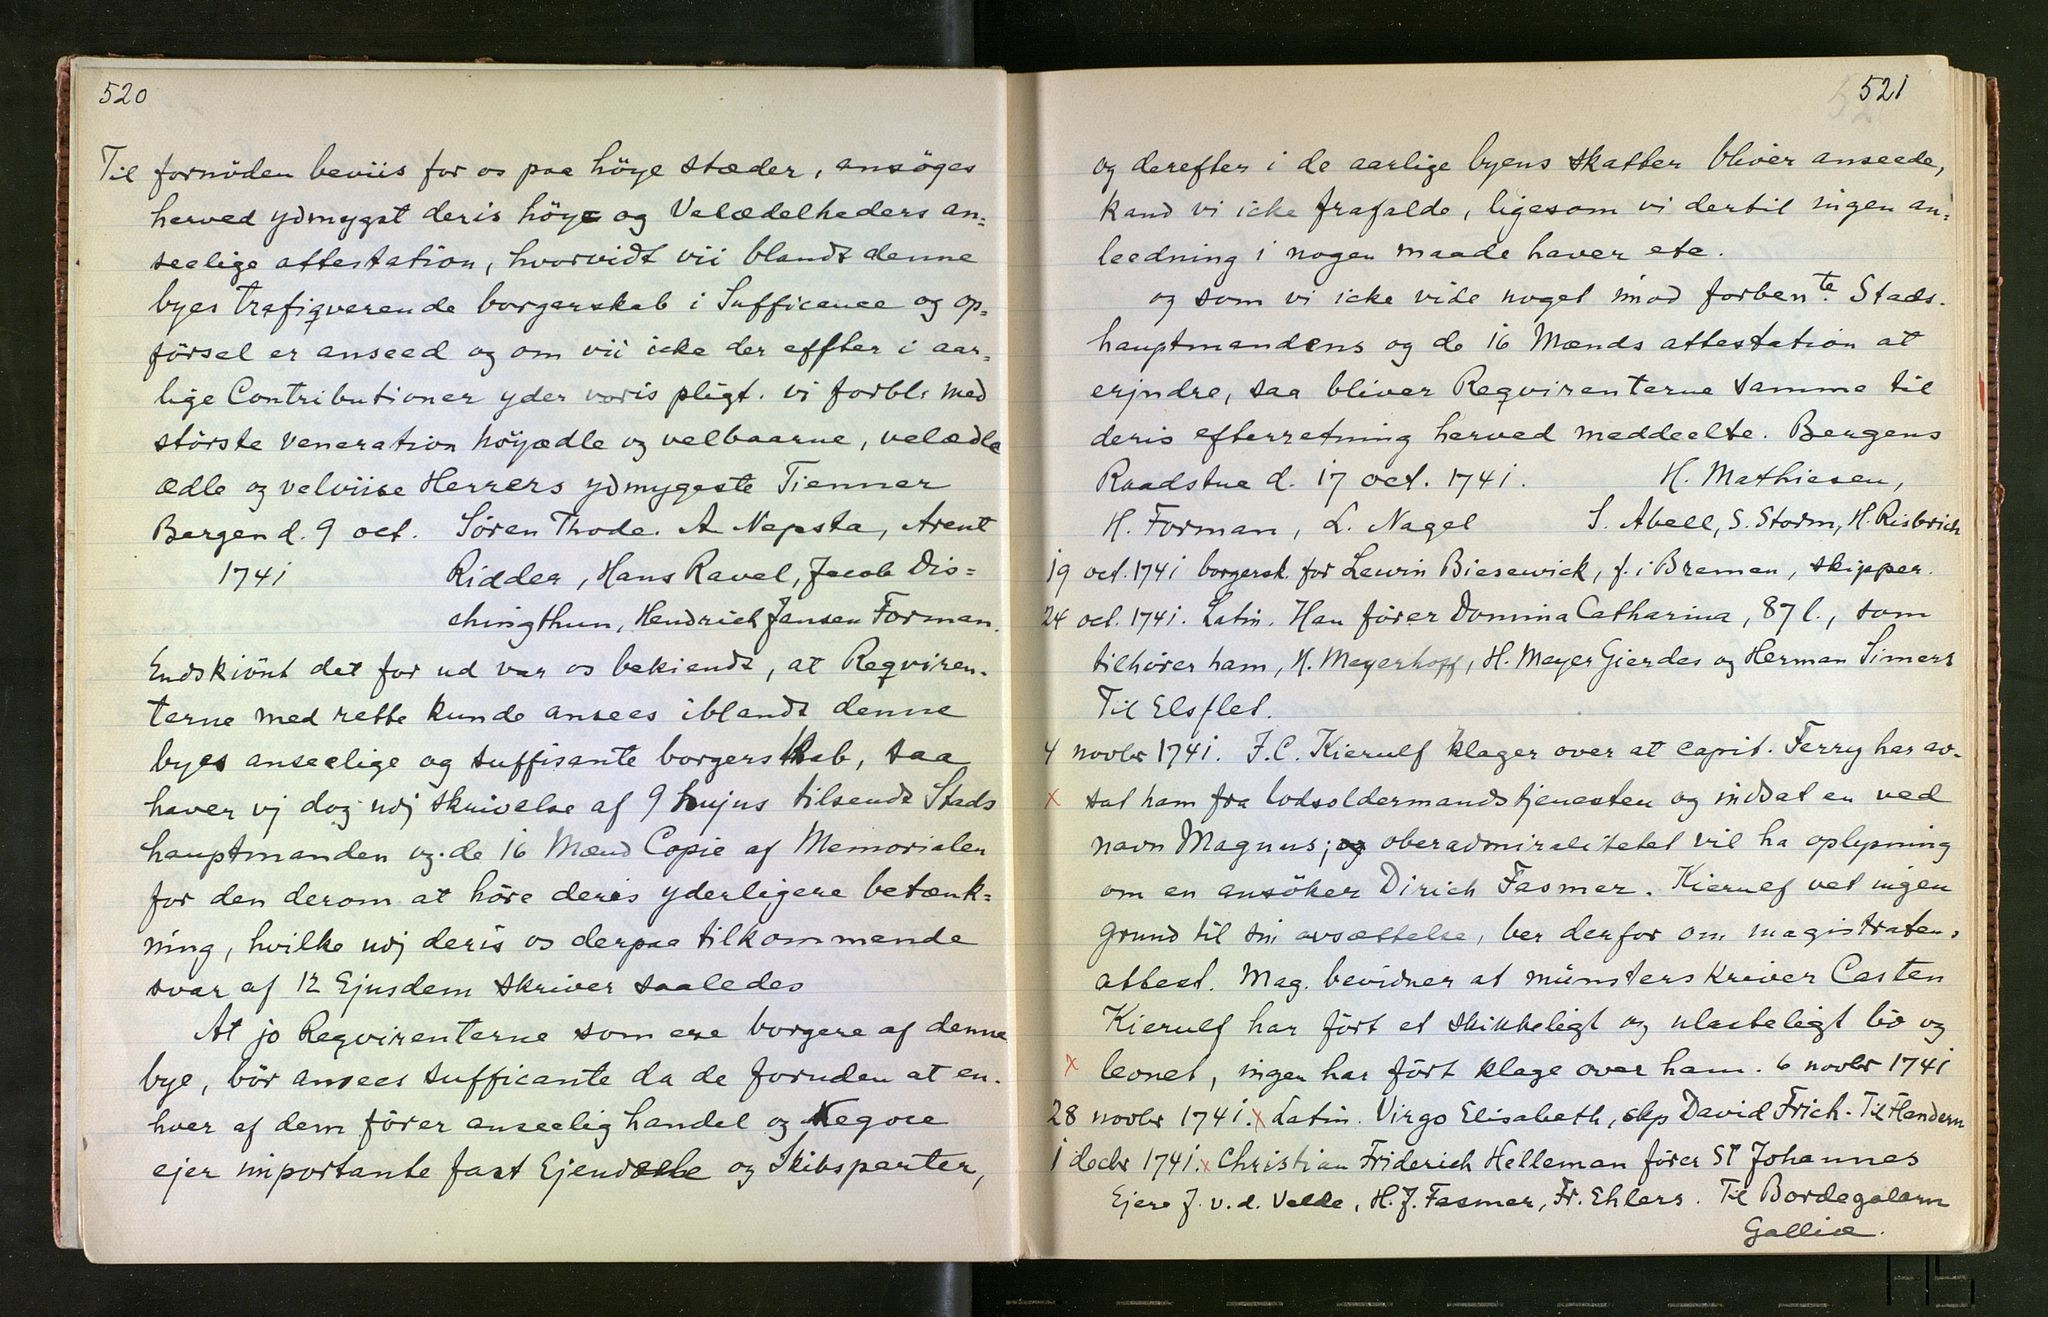 520
Til fornöden beviis for os paa höye stæder, ansöges
herved ydmygst deris höye og Velædelheders an=
seelige attestation, hvorvidt vii blandt denne
byes trafiqverende borgerskab i Sufficence og op=
försel er anseed og om vii icke der effter i aar=
lige Contributioner yder voris pligt. vi forbl. med
störste veneration höyædle og velbaarne, velædle
ædle og velviise Herrers ydmygeste Tienner
Bergen d. 9 oct. Sören Thode. A Nepsta, Arent
1741 Ridder, Hans Ravel, Jacob Dis=
chingthun, Hendrich Jansen Forman.
Endskiönt det for ud var os bekiendt, at Reqviren-
terne med rette kunde ansees iblandt denne
byes anseelige og suffisante borgerskab, saa
haver vj dog udj skrivelse af 9 hujus tilsendt Stads
hauptmanden og de 16 Mænd Copie af Memorialen
for den derom at höre deris yderligere betænk=
ning, hvilke udj deris os derpaa tilkommende
svar af 12 Ejusdem skriver saaledes
At jo Reqvirenterne som ere borgere af denne
bye, bör ansees sufficante da de foruden at en-
hver af dem förer anseelig handel og Negoce
ejer importante fast Ejendele og Skibsparter,
521
og derefter i de aarlige byens skatter bliver anseede,
kand vi icke frafalde, ligesom vi dertil ingen an=
leedning i nogen maade haver etc.
og som vi icke vide noget imod forbente. Stads-
hauptmandens og de 16 Mænds attestation at
erjndre, saa bliver Reqvirenterne samme til
deris efterretning herved meddeelte. Bergens
Raadstue d. 17 oct. 1741. H. Mathiesen,
H. Forman, L. Nagel S. Abell, S. Storm, H. Risbrich
19 oct. 1741 borgersk. for Lewin Biesewick, f. i Bremen, skipper.
24 oct. 1741. Latin. Han förer Domina Catharina, 87 l., som
tilhører ham, H. Meyerhoff, H. Meyer Gierdes og Herman Simers
Til Elsflet.
4 novbr 1741. J.C. Kierulf klager over at capit. Ferry har av-
x sat ham fra lodsoldermandstjenesten og indsat en ved
navn Magnus; og oberadmiralitetet vil ha oplysning
om en ansöker Dirich Fasmer. Kierulf vet ingen
grund til sin avsættelse, ber derfor om magistratens
attest. Mag. bevidner at münsterskriver Casten
Kierulf har fört et skikkeligt og ulasteligt liv og
x levnet, ingen har fört klage over ham. 6 novbr 1741
28 novbr 1741. x Latin. Virgo Elisabeth, skp David Frich. Til Flandern
1 decbr 1741. x Christian Friderich Helleman förer St Johannes
Ejere J. v. d. Velde, H. J. Fasmer, Fr. Ehlers. Til Bordegalam
Galliæ.